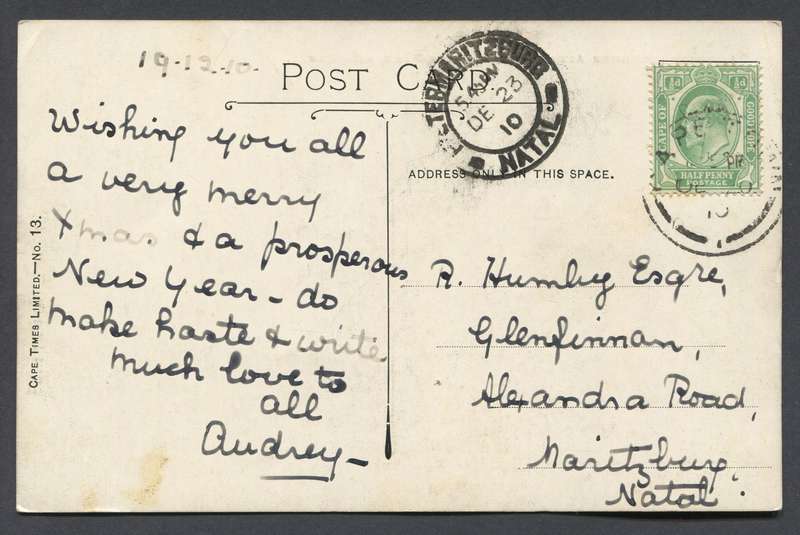 19.12.10.
POST CARD
ADDRESS ONLY IN THIS SPACE.
Wishing you all
a very merry
Xmas & a prosperous
New Year - do
make haste & write
much love to
all
Audrey -
R. Humby Esqre,
Glenfinnan,
Alexandra Road,
Maritzburg,
Natal.
CAPE TIMES LIMITED.—No. 13.
PIETERMARITZBURG
DE 23
10
NATAL
CAPE OF GOOD HOPE
½d ½d
HALF PENNY
POSTAGE
10
1